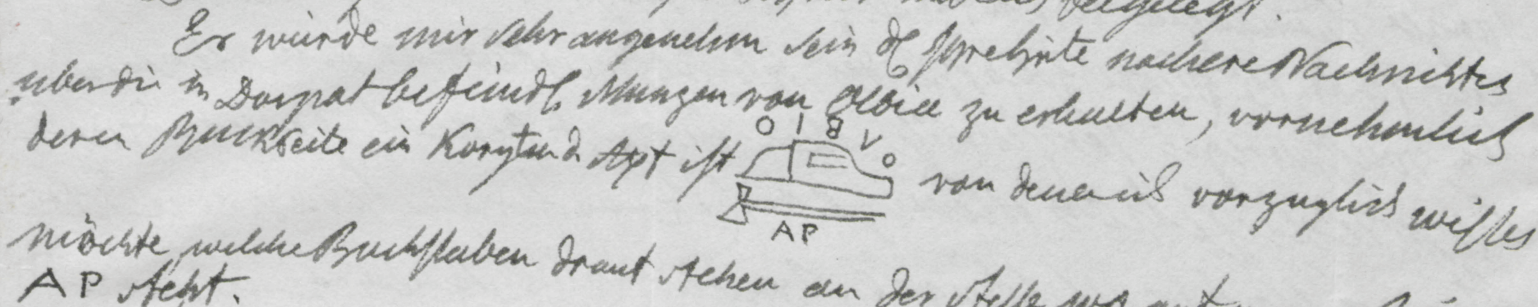 beygelegt.
Es würde mir sehr angenehm sein nähere Nachrichten
über die in Dorpat befindl Münzen von Olbia zu erhalten, vornehmlich
deren Rückseite ein Koryt und Axt ist OIBVO von denen ich vorzüglich wissen
AP
möchte welche Buchstaben drauf stehen an der Stelle wo
AP steht.